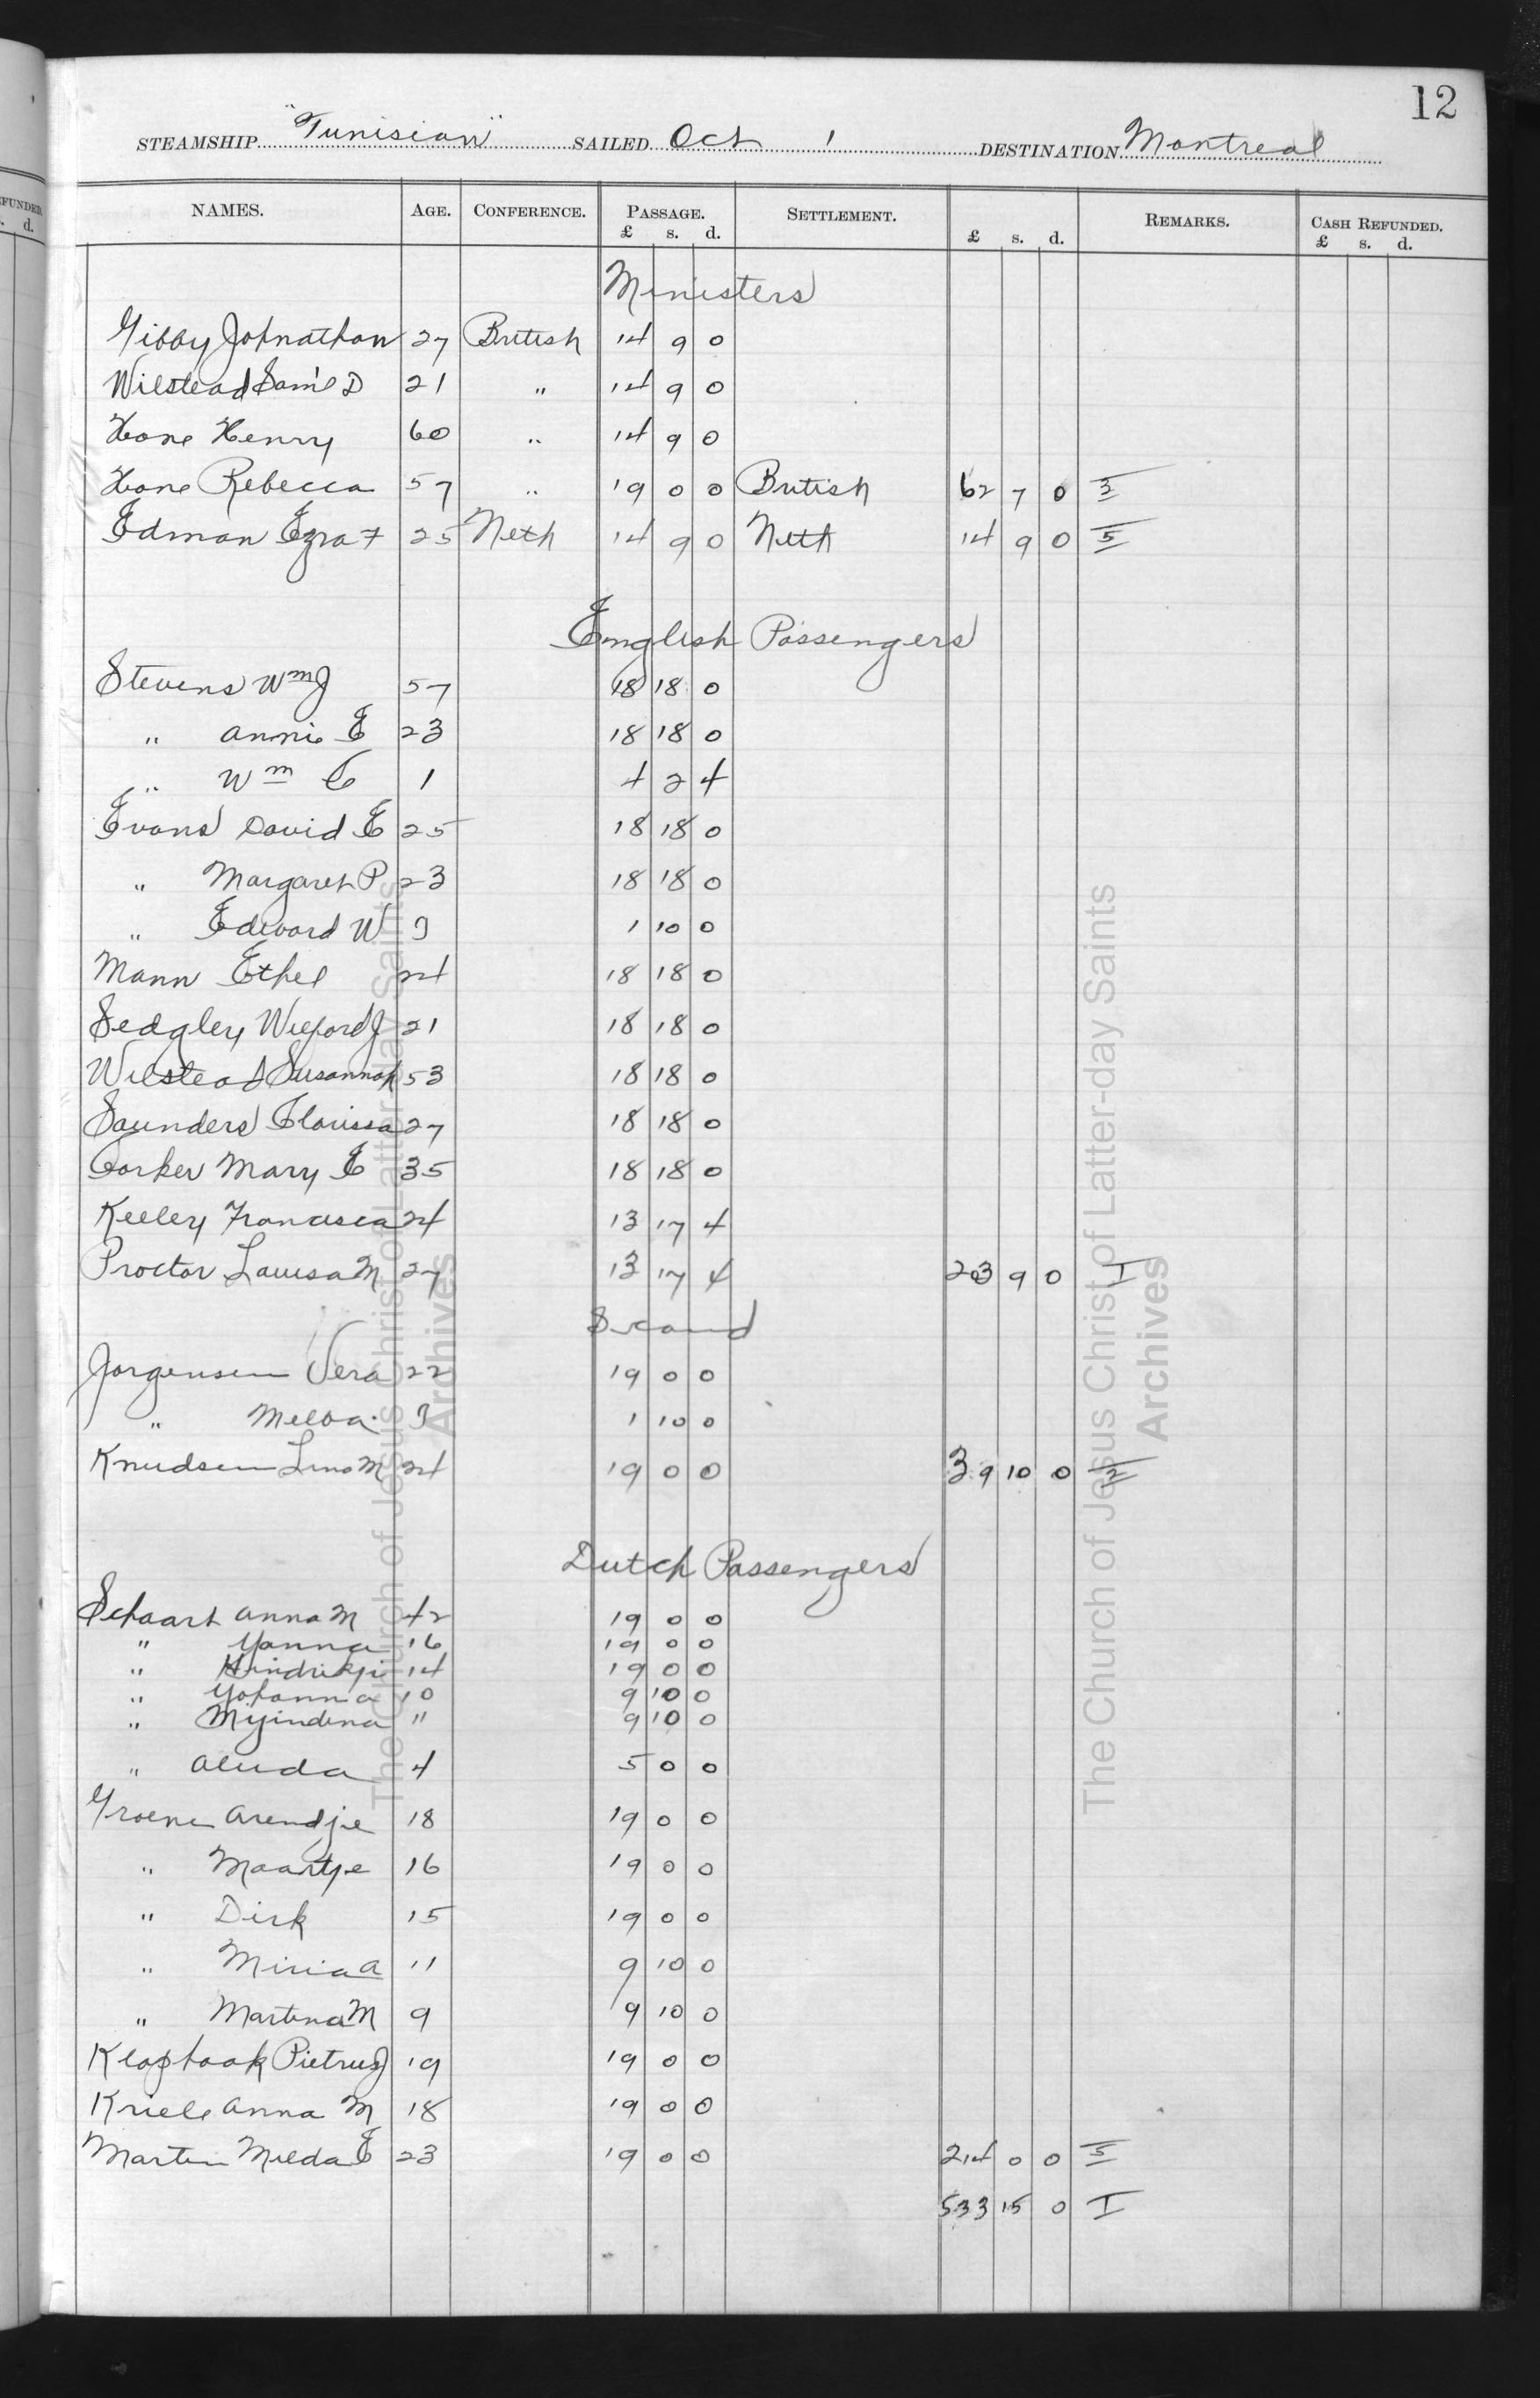 12
STEAMSHIP "Tunisian" SAILED Oct 1 DESTINATION Montreal
NAMES. AGE. CONFERENCE. PASSAGE. £ s. d. SETTLEMENT. £ s. d. REMARKS. CASH REFUNDED. £ s. d.
Ministers
Gibby Johnathan 27 British 14 9 0
Wilstead Saml D 21 " 14 9 0
Hone Henry 60 " 14 9 0
Hone Rebecca 57 " 19 0 0 British 62 7 0 3
Edman Ezra T 25 Neth 14 9 0 Neth 14 9 0 5
English Passengers
Stevens Wm J 57 18 18 0
" Annie E 23 18 18 0
" Wm C 1 4 2 4
Evans David E 25 18 18 0
" Margaret P 23 18 18 0
" Edward W I 1 10 0
Mann Ethel 24 18 18 0
Sedgley Wilford J 21 18 18 0
Wilstead Susannah 53 18 18 0
Saunders Clarissa 27 18 18 0
Corker Mary E 35 18 18 0
Keeley Francisca 24 13 17 4
Proctor Louisa M 27 13 17 4 203 9 0 I
Scand
Jorgensen Vera 22 19 0 0
" Melba I 1 10 0
Knudsen M 24 19 0 0 39 10 0 2
Dutch Passengers
Schaart Anna M 42 19 0 0
" Yanna 16 19 0 0
" Hindrikji 14 19 0 0
" Yohanna 10 9 10 0
" Mijindena " 9 10 0
" Aluda 4 5 0 0
Groene Arendje 18 19 0 0
" Maartje 16 19 0 0
" Dirk 15 19 0 0
" Miria A 11 9 10 0
" Martina M 9 9 10 0
Klaphaak Pietrus J 19 19 0 0
Kriele Anna M 18 19 0 0
Martin Milda E 23 19 0 0 214 0 0 5
533 15 0 I
The Church of Jesus Christ of Latter-day Saints
Archives
The Church of Jesus Christ of Latter-day Saints
Archives